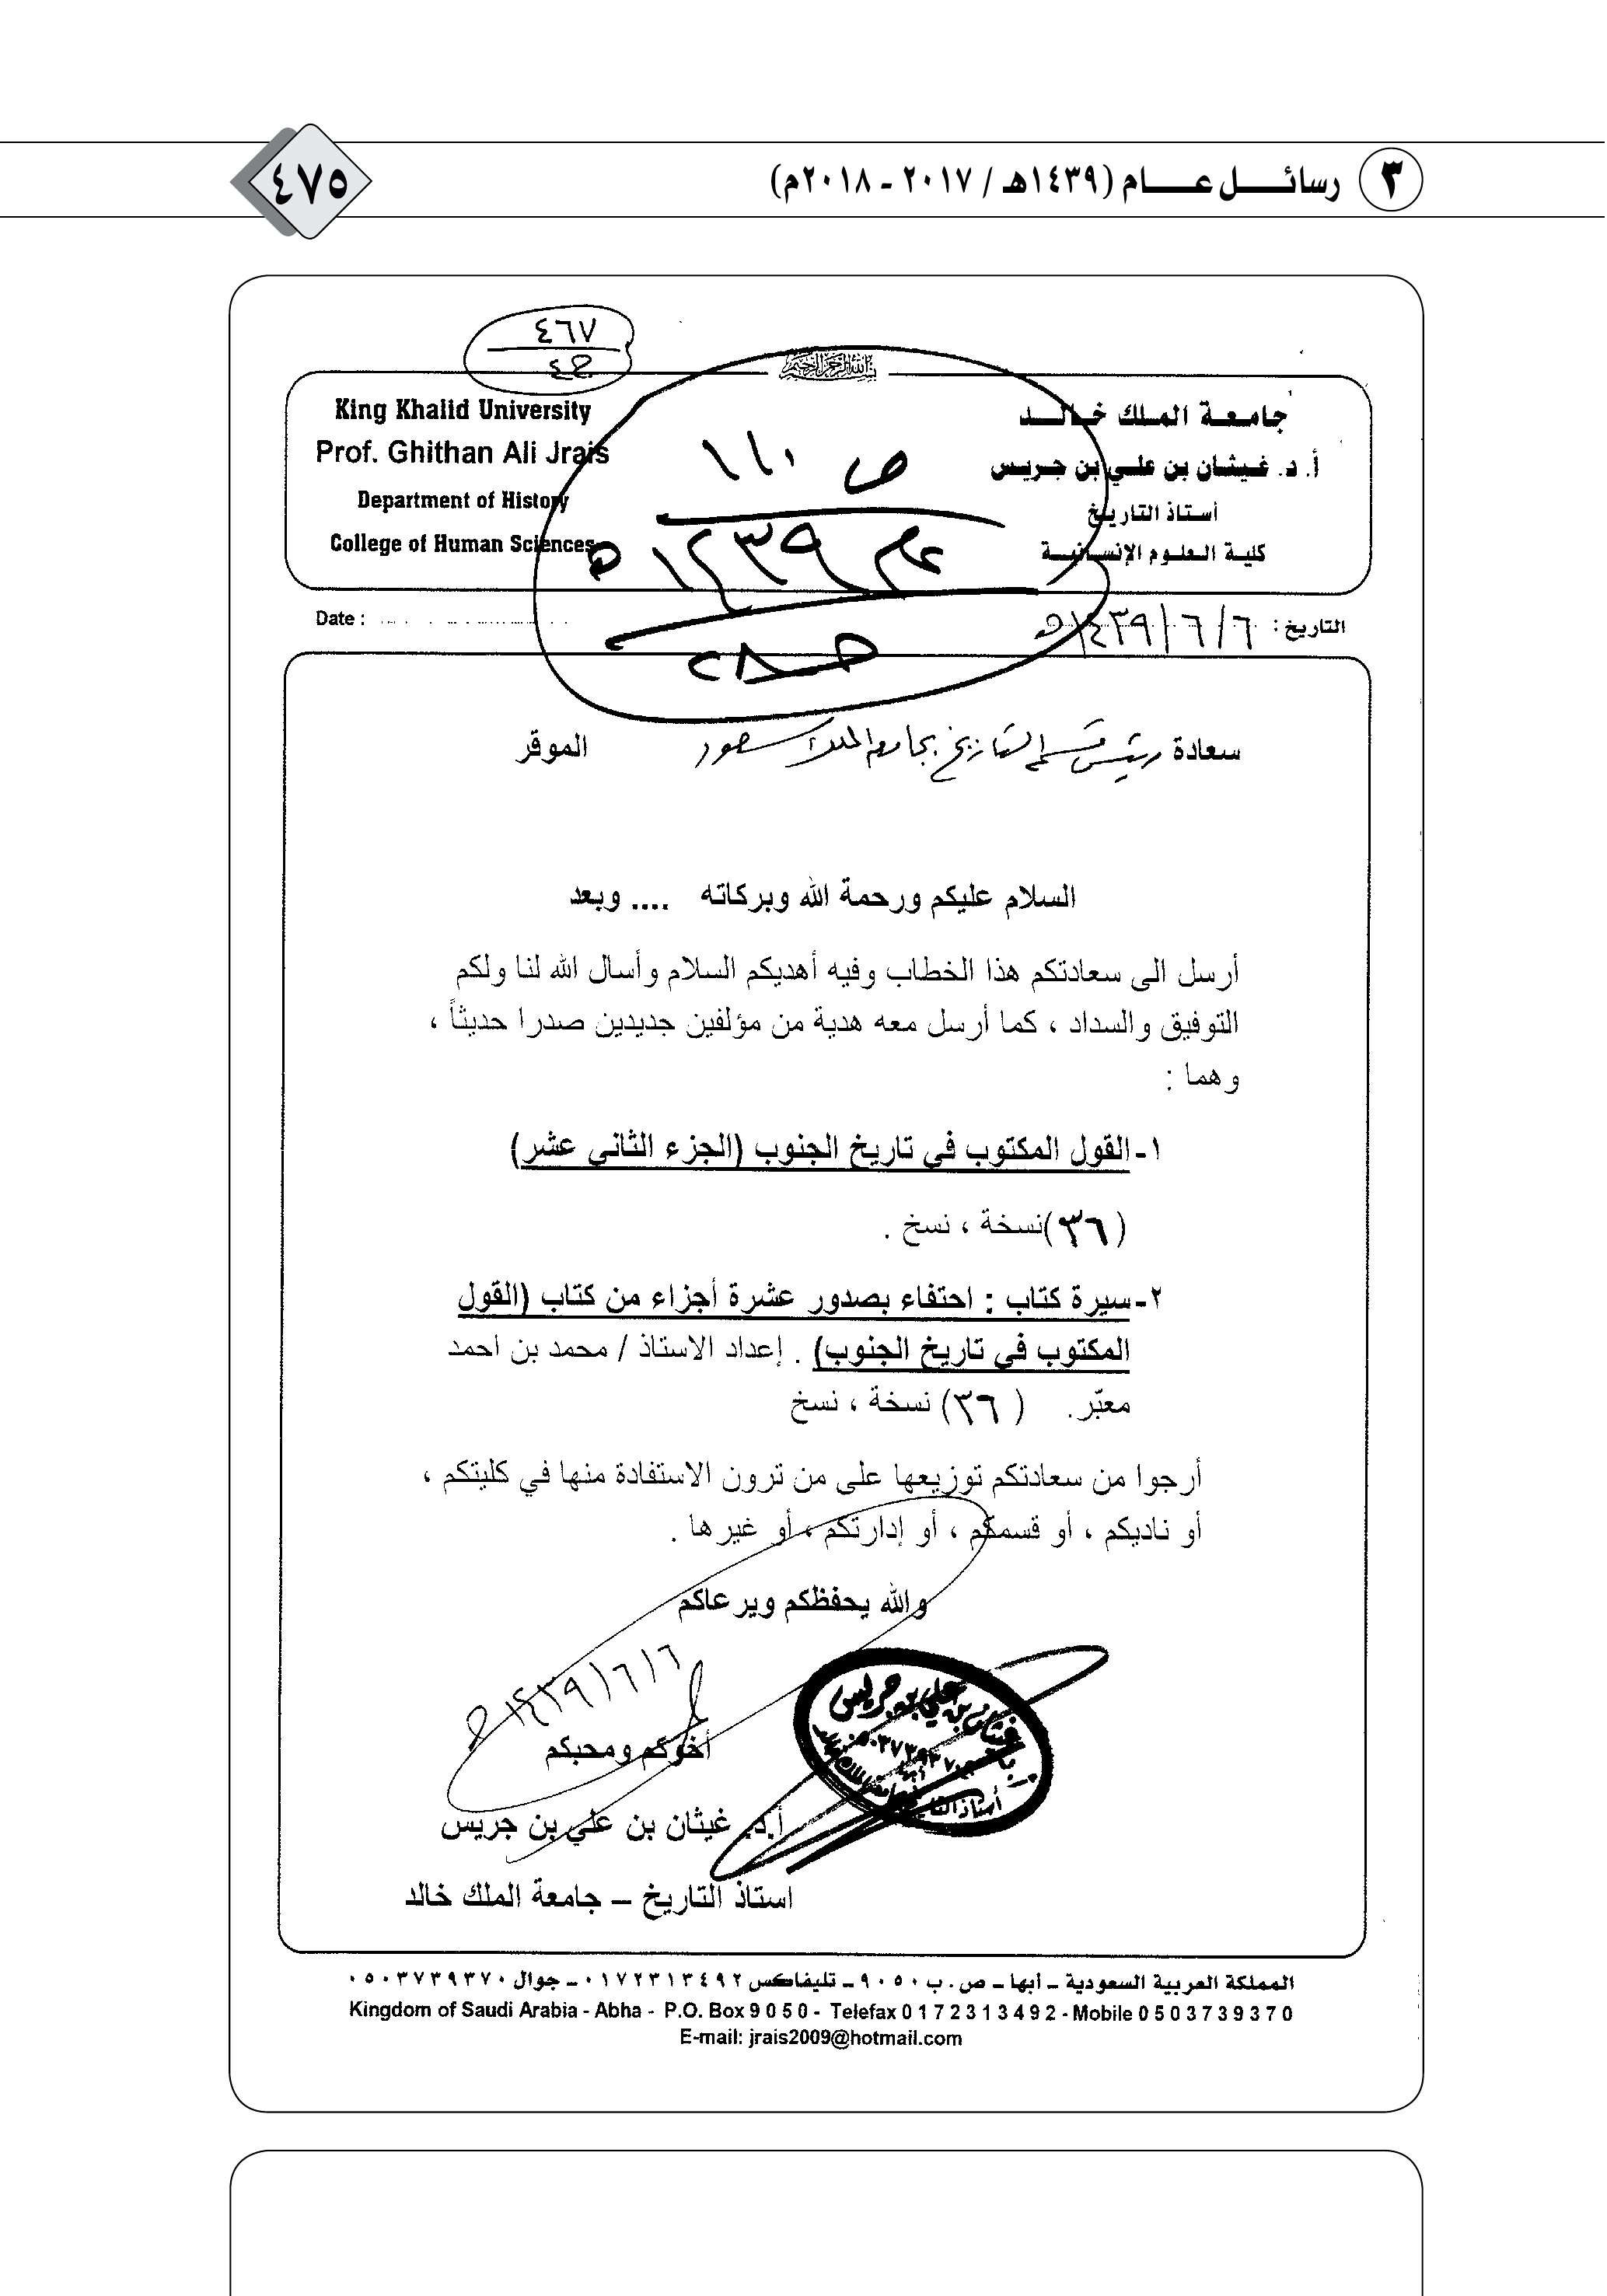 ٣ رسائـــل عـــام (١٤٣٩هـ / ٢٠١٧ - ٢٠١٨م)
٤٧٥
٤٦٧
بسم الله الرحمن الرحيم
جامعة الملك خالد
أ. د. غيثان بن علي بن جريس
أستاذ التاريخ
كلية العلوم الإنسانية
King Khalid University
Prof. Ghithan Ali Jrais
Department of History
College of Human Sciences
ص ١١٠
عام ١٤٣٩هـ
التاريخ : ١٤٣٩/٦/٦هـ
Date :
سعادة رئيس قسم التاريخ بجامعة الملك سعود الموقر
السلام عليكم ورحمة الله وبركاته .... وبعد
أرسل الى سعادتكم هذا الخطاب وفيه أهديكم السلام وأسال الله لنا ولكم
التوفيق والسداد ، كما أرسل معه هدية من مؤلفين جديدين صدرا حديثاً ،
وهما :
١- القول المكتوب في تاريخ الجنوب (الجزء الثاني عشر)
(٣٦) نسخة ، نسخ .
٢- سيرة كتاب : احتفاء بصدور عشرة أجزاء من كتاب (القول
المكتوب في تاريخ الجنوب) . إعداد الاستاذ / محمد بن احمد
معبّر. (٣٦) نسخة ، نسخ
أرجوا من سعادتكم توزيعها على من ترون الاستفادة منها في كليتكم ،
أو ناديكم ، أو قسمكم ، أو إدارتكم ، أو غيرها .
والله يحفظكم ويرعاكم
١٤٣٩/٦/٦هـ
أخوكم ومحبكم
أ.د. غيثان بن علي بن جريس
استاذ التاريخ – جامعة الملك خالد
المملكة العربية السعودية – أبها – ص . ب ٩٠٥٠ – تليفاكس ٠١٧٢٣١٣٤٩٢ – جوال ٠٥٠٣٧٣٩٣٧٠
Kingdom of Saudi Arabia - Abha - P.O. Box 9 0 5 0 - Telefax 0 1 7 2 3 1 3 4 9 2 - Mobile 0 5 0 3 7 3 9 3 7 0
E-mail: jrais2009@hotmail.com